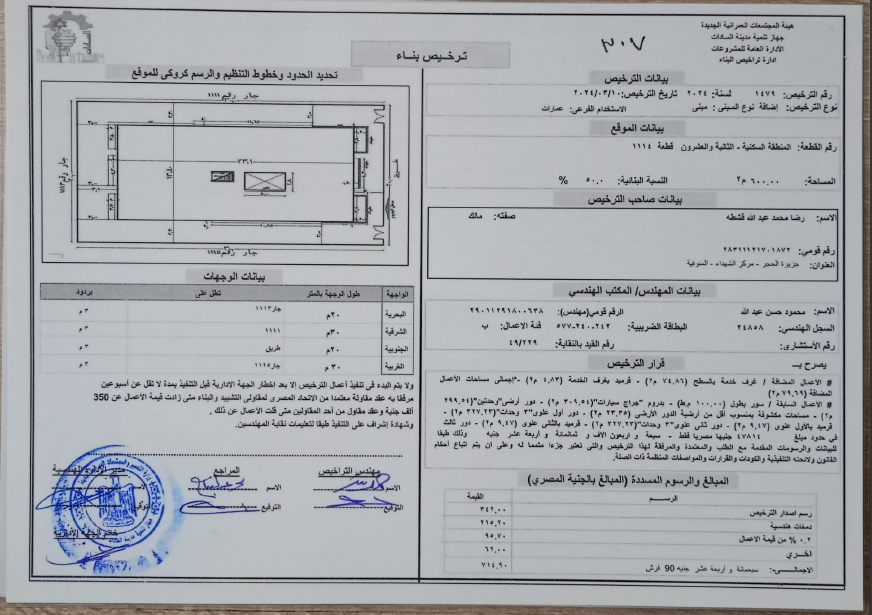 هيئة المجتمعات العمرانية الجديدة
جهاز تنمية مدينة السادات
الأدارة العامة للمشروعات
ادارة تراخيص البناء
٣٠٧
السادات
ترخيص بناء
بيانات الترخيص
رقم الترخيص: ١٤٧٩ لسنة: ٢٠٢٤ تاريخ الترخيص: ٢٠٢٤/٠٣/١٠
نوع الترخيص: إضافة نوع المبنى: مبنى الاستخدام الفرعى: عمارات
بيانات الموقع
رقم القطعة: المنطقة السكنية - الثانية والعشرون قطعة ١١١٤
المساحة: ٦٠٠.٠٠ م٢ النسبة البنائية: ٥٠.٠ %
بيانات صاحب الترخيص
الاسم: رضا محمد عبد الله قشطه صفته: مالك
رقم قومي: ٢٨٣١١١٢١٧٠١٨٧٢
العنوان: جزيرة الحجر - مركز الشهداء - المنوفية
بيانات المهندس/ المكتب الهندسي
الاسم: محمود حسن عبد الله الرقم قومي(مهندس): ٢٩٠١١٢٩١٨٠٠٦٣٨
السجل الهندسي: ٢٤٨٥٨ البطاقة الضريبية: ٢٤٢-٢٤٠-٥٧٧ فئة الاعمال: ب
رقم الأستشارى: رقم القيد بالنقابة: ٤٩/٢٢٩
قرار الترخيص
يصرح بـ
# الأعمال المضافة / غرف خدمة بالسطح (٧٤,٨٦ م٢) - قرميد بغرف الخدمة (٤,٨٣ م٢) -*إجمالى مساحات الأعمال
المضافة (٧٩,٦٩ م٢)
# الأعمال السابقة / سور بطول (١٠٠,٠٠ م.ط) - بدروم "جراج سيارات"(٣٠٩,٥٤ م٢) - دور أرضى"وحدتين"(٢٩٩,٥٤
م٢) - مساحات مكشوفة بمنسوب أقل من أرضية الدور الأرضى (٢٣,٣٥ م٢) - دور أول علوى"٣ وحدات"(٣٢٧,٢٣ م٢) -
قرميد بالأول علوى (٩,٤٧ م٢) - دور ثانى علوى"٣ وحدات"(٣٢٧,٢٣ م٢) - قرميد بالثانى علوى (٩,٤٧ م٢) - دور ثالث
في حدود مبلغ ٤٧٨١٤ جنيها مصريا فقط - سبعة و اربعون الاف و ثمانمائة و أربعة عشر جنيه وذلك طبقا
للبيانات والرسومات المقدمة مع الطلب والمعتمدة والمرفقة لهذا الترخيص والتى تعتبر جزءا متمما له وعلى ان يتم اتباع أحكام
القانون ولائحته التنفيذية والكودات والقرارات والمواصفات المنظمة ذات الصلة.
المبالغ والرسوم المسددة (المبالغ بالجنية المصري)
الرســـم القيمة
رسم اصدار الترخيص ٣٤٢.٠٠
دمغات هندسية ٢١٥.٢٠
٠.٢ % من قيمة الاعمال ٩٥.٧٠
اخــري ٦٢.٠٠
الاجمالـــي:- سبعمائة و أربعة عشر جنيه 90 قرش ٧١٤.٩٠
تحديد الحدود وخطوط التنظيم والرسم كروكى للموقع
جار رقم ١١١١
جار رقم ٧١١٣
جار رقم ١١١٥
بيانات الوجهات
الواجهة طول الوجهة بالمتر تطل على بردود
البحرية ٢٠م جار١١١٣ ٣ م
الشرقية ٣٠م ١١١١ ٣ م
الجنوبية ٢٠م طريق ٣ م
الغربية ٣٠ م جار١١١٥ ٣ م
ولا يتم البدء فى تنفيذ أعمال الترخيص الا بعد إخطار الجهة الإدارية قبل التنفيذ بمدة لا تقل عن أسبوعين
مرفقا به عقد مقاولة معتمدا من الاتحاد المصرى لمقاولى التشييد والبناء متى زادت قيمة الأعمال عن 350
ألف جنية وعقد مقاول من أحد المقاولين متى قلت الأعمال عن ذلك .
وشهادة إشراف على التنفيذ طبقا لتعليمات نقابة المهندسين.
مهندس التراخيص المراجع مدير الادارة الهندسية
الاسم الاسم الاسم
التوقيع التوقيع التوقيع
خاتم الجهة الأدارية